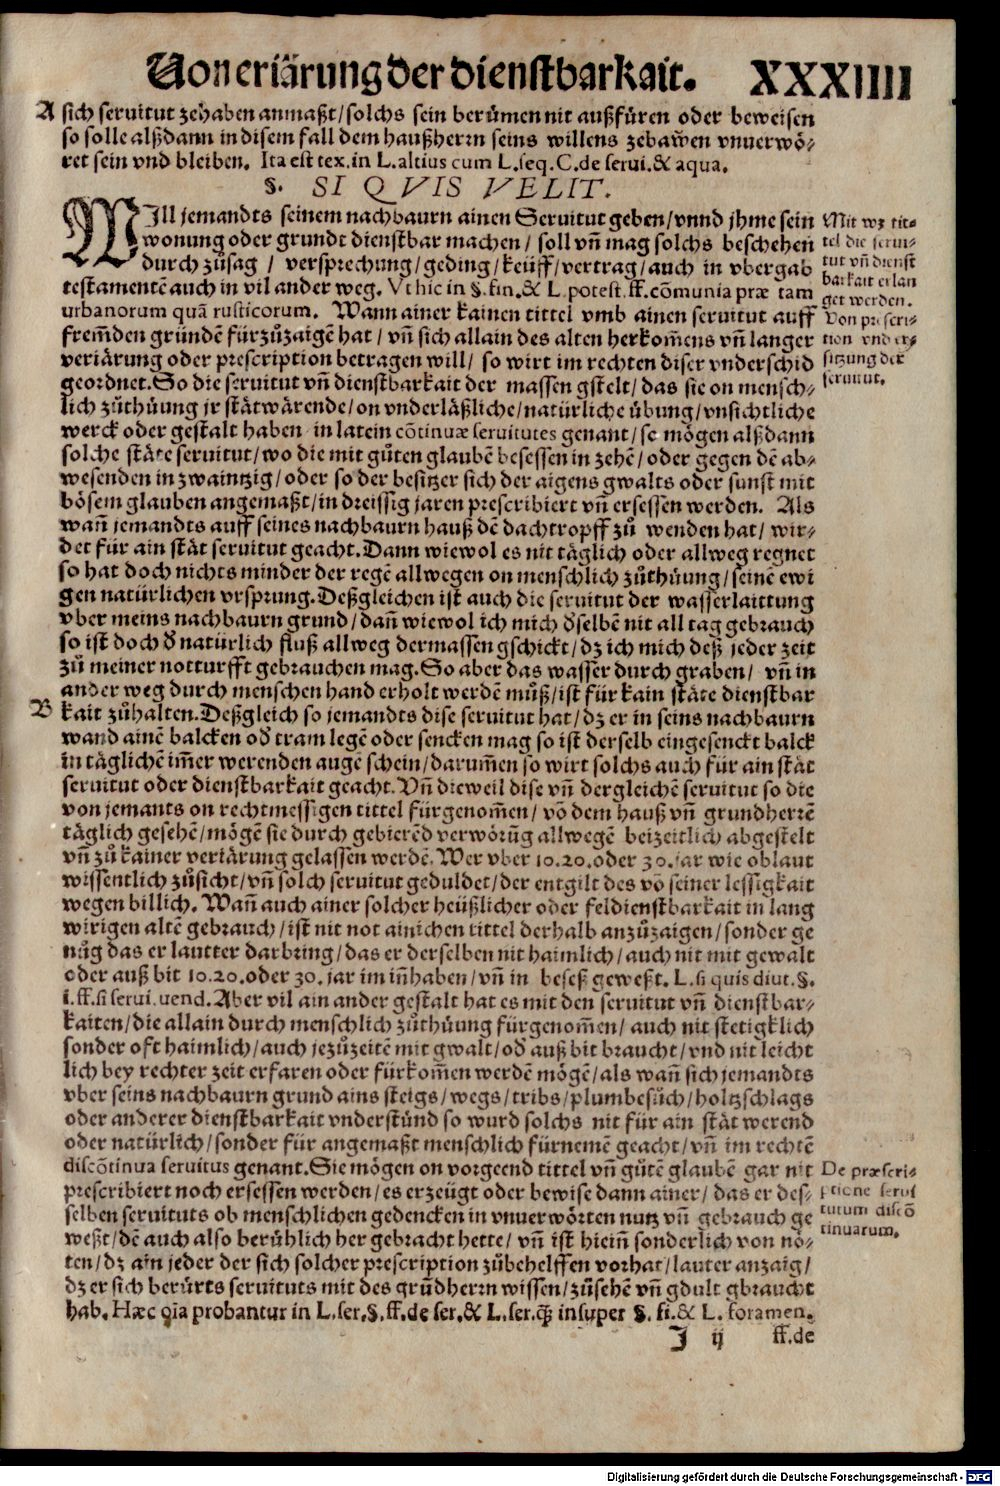 Von eriärung der dienstbarkait. XXXIIII
A sich seruitut zehaben anmaßt/solchs sein berůmen nit außfüren oder beweisen
so solle alßdann in disem fall dem haußherrn seins willens zebaẅen vnuerwö⸗
ret sein vnd bleiben. Ita est tex. in L. altius cum L. seq. C. de serui. & aqua.
§. SI QVIS VELIT.
WIll jemandts seinem nachbaurn ainen Seruitut geben/vnnd jhme sein
wonung oder grundt dienstbar machen/ soll vñ mag solchs beschehen
durch zůsag / versprechung/geding/keüff/vertrag/auch in vbergab
testamentē auch in vil ander weg. Vt hic in §. fin. & L. potest. ff. cōmunia præ tam
urbanorum quā rusticorum. Wann ainer kainen tittel vmb ainen seruitut auff
frem̃den gründē fürzůzaigē hat/ vñ sich allain des alten herkom̃ens vñ langer
veriärung oder prescription betragen will/ so wirt im rechten diser vnderschid
geordnet. So die seruitut vñ dienstbarkait der massen gstelt/das sie on mensch⸗
lich zůthůung jr stätwärende/on vnderläßliche/natürliche übung/vnsichtliche
werck oder gestalt haben in latein cōtinuæ seruitutes genant/so mögen alßdann
solche stäte seruitut/wo die mit gůten glaubē besessen in zehē/oder gegen dē ab⸗
wesenden in zwaintzig/oder so der besitzer sich der aigens gwalts oder sunst mit
bösem glauben angemaßt/in dreissig jaren prescribiert vñ ersessen werden. Als
wañ jemandts auff seines nachbaurn hauß dē dachtropff zů wenden hat/ wir⸗
det für ain stät seruitut geacht. Dann wiewol es nit täglich oder allweg regnet
so hat doch nichts minder der regē allwegen on menschlich zůthůung/seinē ewi
gen natürlichen vrsprung. Deßgleichen ist auch die seruitut der wasserlaittung
vber meins nachbaurn grund/dañ wiewol ich mich dselbē nit all tag gebrauch
so ist doch d natürlich fluß allweg dermassen gschickt/dz ich mich deß jeder zeit
zů meiner notturfft gebrauchen mag. So aber das wasser durch graben/ vñ in
ander weg durch menschen hand erholt werdē můß/ist für kain stäte dienstbar
B kait zůhalten. Deßgleich so jemandts dise seruitut hat/dz er in seins nachbaurn
wand ainē balcken od tram legē oder sencken mag so ist derselb eingesenckt balck
in täglichē im̃er werenden augē schein/darum̃en so wirt solchs auch für ain stät
seruitut oder dienstbarkait geacht. Vñ dieweil dise vñ dergleichē seruitut so die
von jemants on rechtmessigen tittel fürgenom̃en/ vō dem hauß vñ grundherrē
täglich gesehē/mögē sie durch gebierēd verwörūg allwegē beizeitlich abgestelt
vñ zů kainer veriärung gelassen werdē. Wer vber 10.20.oder 30. jar wie oblaut
wissentlich zůsicht/vñ solch seruitut geduldet/der entgilt des vō seiner lessigkait
wegen billich. Wañ auch ainer solcher heüßlicher oder feldienstbarkait in lang
wirigen altē gebrauch/ist nit not ainichen tittel derhalb anzůzaigen/sonder ge
nůg das er lautter darbring/das er derselben nit haimlich/auch nit mit gewalt
oder auß bit 10.20.oder 30. jar im iñhaben/vñ in beseß geweßt. L. si quis diut. §.
i. ff. si serui. uend. Aber vil ain ander gestalt hat es mit den seruitut vñ dienstbar⸗
kaiten/die allain durch menschlich zůthůung fürgenom̃en/ auch nit stetigklich
sonder oft haimlich/auch jezůzeitē mit gwalt/od auß bit braucht/vnd nit leicht
lich bey rechter zeit erfaren oder fürkom̃en werdē mögē/als wañ sich jemandts
vber seins nachbaurn grund ains steigs/wegs/tribs/plumbesůch/holtzschlags
oder anderer dienstbarkait vnderstünd so wurd solchs nit für ain stät werend
oder natürlich/sonder für angemaßt menschlich fürnemē geacht/vñ im rechtē
discōtinua seruitus genant. Sie mögen on vorgeend tittel vñ gůtē glaubē gar nit
prescribiert noch ersessen werden/es erzeügt oder bewise dann ainer/ das er des⸗
selben seruituts ob menschlichen gedencken in vnuerwörten nutz vñ gebrauch ge
weßt/dē auch also berühlich her gebracht hette/ vñ ist hieiñ sonderlich von nö⸗
ten/dz ain jeder der sich solcher prescription zůbehelffen vorhat/lauter anzaig/
dz er sich berürts seruituts mit des grūdherrn wissen/zůsehē vñ gdult gbraucht
hab. Hæc oīa probantur in L. ser. §. ff. de ser. & L. ser. q̃ insuper §. fi. & L. foramen.
J ij ff. de
Mit wz tit⸗
tel die serui⸗
tut vñ dienst
barkait erlan
get werden.
Von prescri⸗
tion vnd er⸗
sitzung der
seruitut.
De præscri⸗
ptione serui
tutum discō
tinuarum.
Digitalisierung gefördert durch die Deutsche Forschungsgemeinschaft - DFG